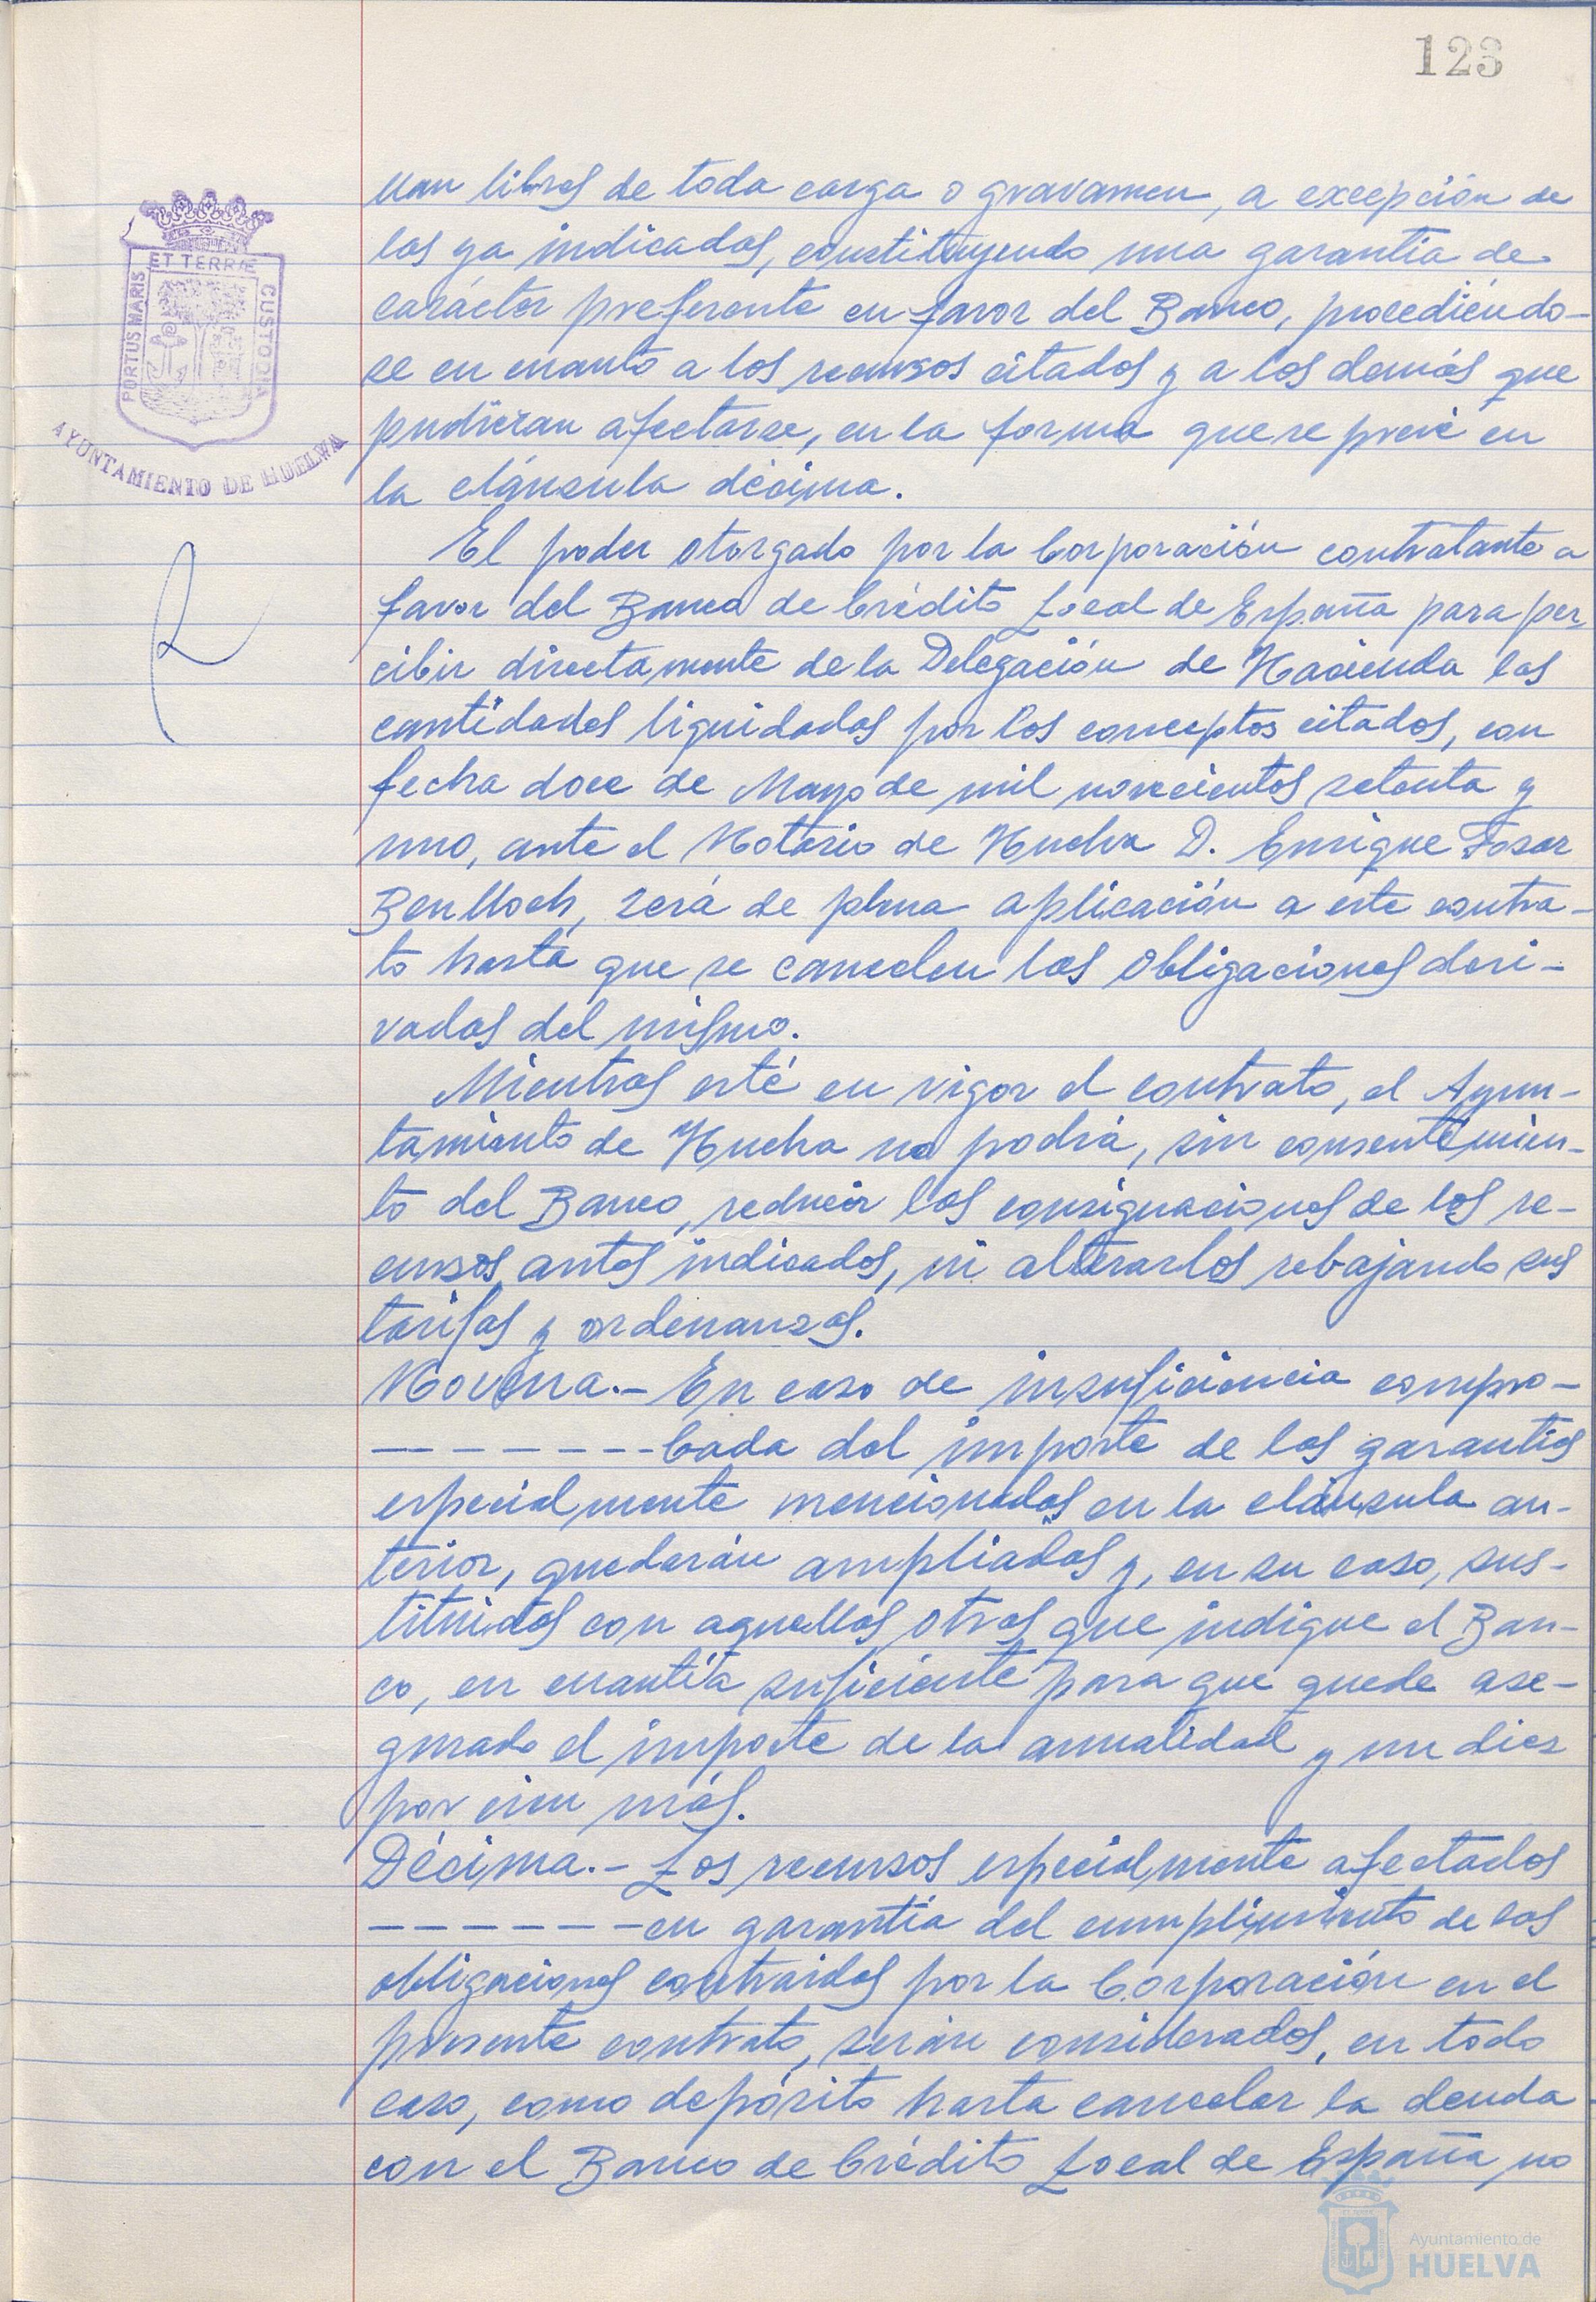 123
ET TERRÆ
PORTUS MARIS
CUSTODIA
AYUNTAMIENTO DE HUELVA
llan libres de toda carga o gravamen, a excepción de
los ya indicados, constituyendo una garantía de
carácter preferente en favor del Banco, procediéndo-
se en cuanto a los recursos citados y a los demás que
pudieran afectarse, en la forma que se prevé en
la cláusula décima.
El poder otorgado por la Corporación contratante a
favor del Banco de Crédito Local de España para per-
cibir directamente de la Delegación de Hacienda las
cantidades liquidadas por los conceptos citados, con
fecha doce de Mayo de mil novecientos setenta y
uno, ante el Notario de Huelva D. Enrique Fosar
Benlloch, será de plena aplicación a este contra-
to hasta que se cancelen las obligaciones deri-
vadas del mismo.
Mientras esté en vigor el contrato, el Ayun-
tamiento de Huelva no podrá, sin consentimien-
to del Banco, reducir las consignaciones de los re-
cursos antes indicados, ni alterarlos rebajando sus
tarifas y ordenanzas.
Novena.- En caso de insuficiencia compro-
- - - - - - - bada del importe de las garantías
especialmente mencionadas en la cláusula an-
terior, quedarán ampliadas y, en su caso, sus-
tituidas con aquellas otras que indique el Ban-
co, en cuantía suficiente para que quede ase-
gurado el importe de la anualidad y un diez
por cien más.
Décima.- Los recursos especialmente afectados
- - - - - - - en garantía del cumplimiento de las
obligaciones contraidas por la Corporación en el
presente contrato, serán considerados, en todo
caso, como depósito hasta cancelar la deuda
con el Banco de Crédito Local de España, no
Ayuntamiento de
HUELVA